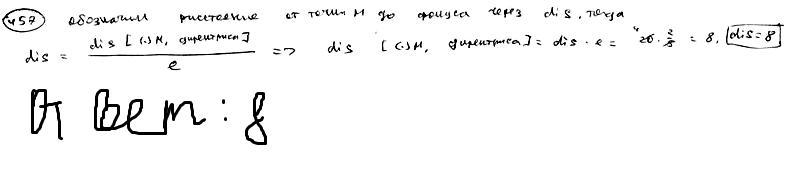 457 обозначим расстояние от точки М до фокуса через dis, тогда
dis = dis [(·)М, директриса] / e => dis [(·)М, директриса] = dis · e = 20 · 2/5 = 8, dis = 8
Ответ: 8